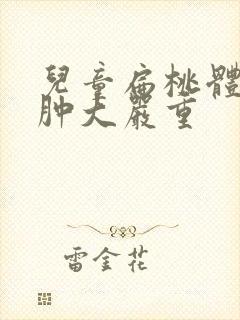 兒童扁桃體
肿大嚴重
雷金花